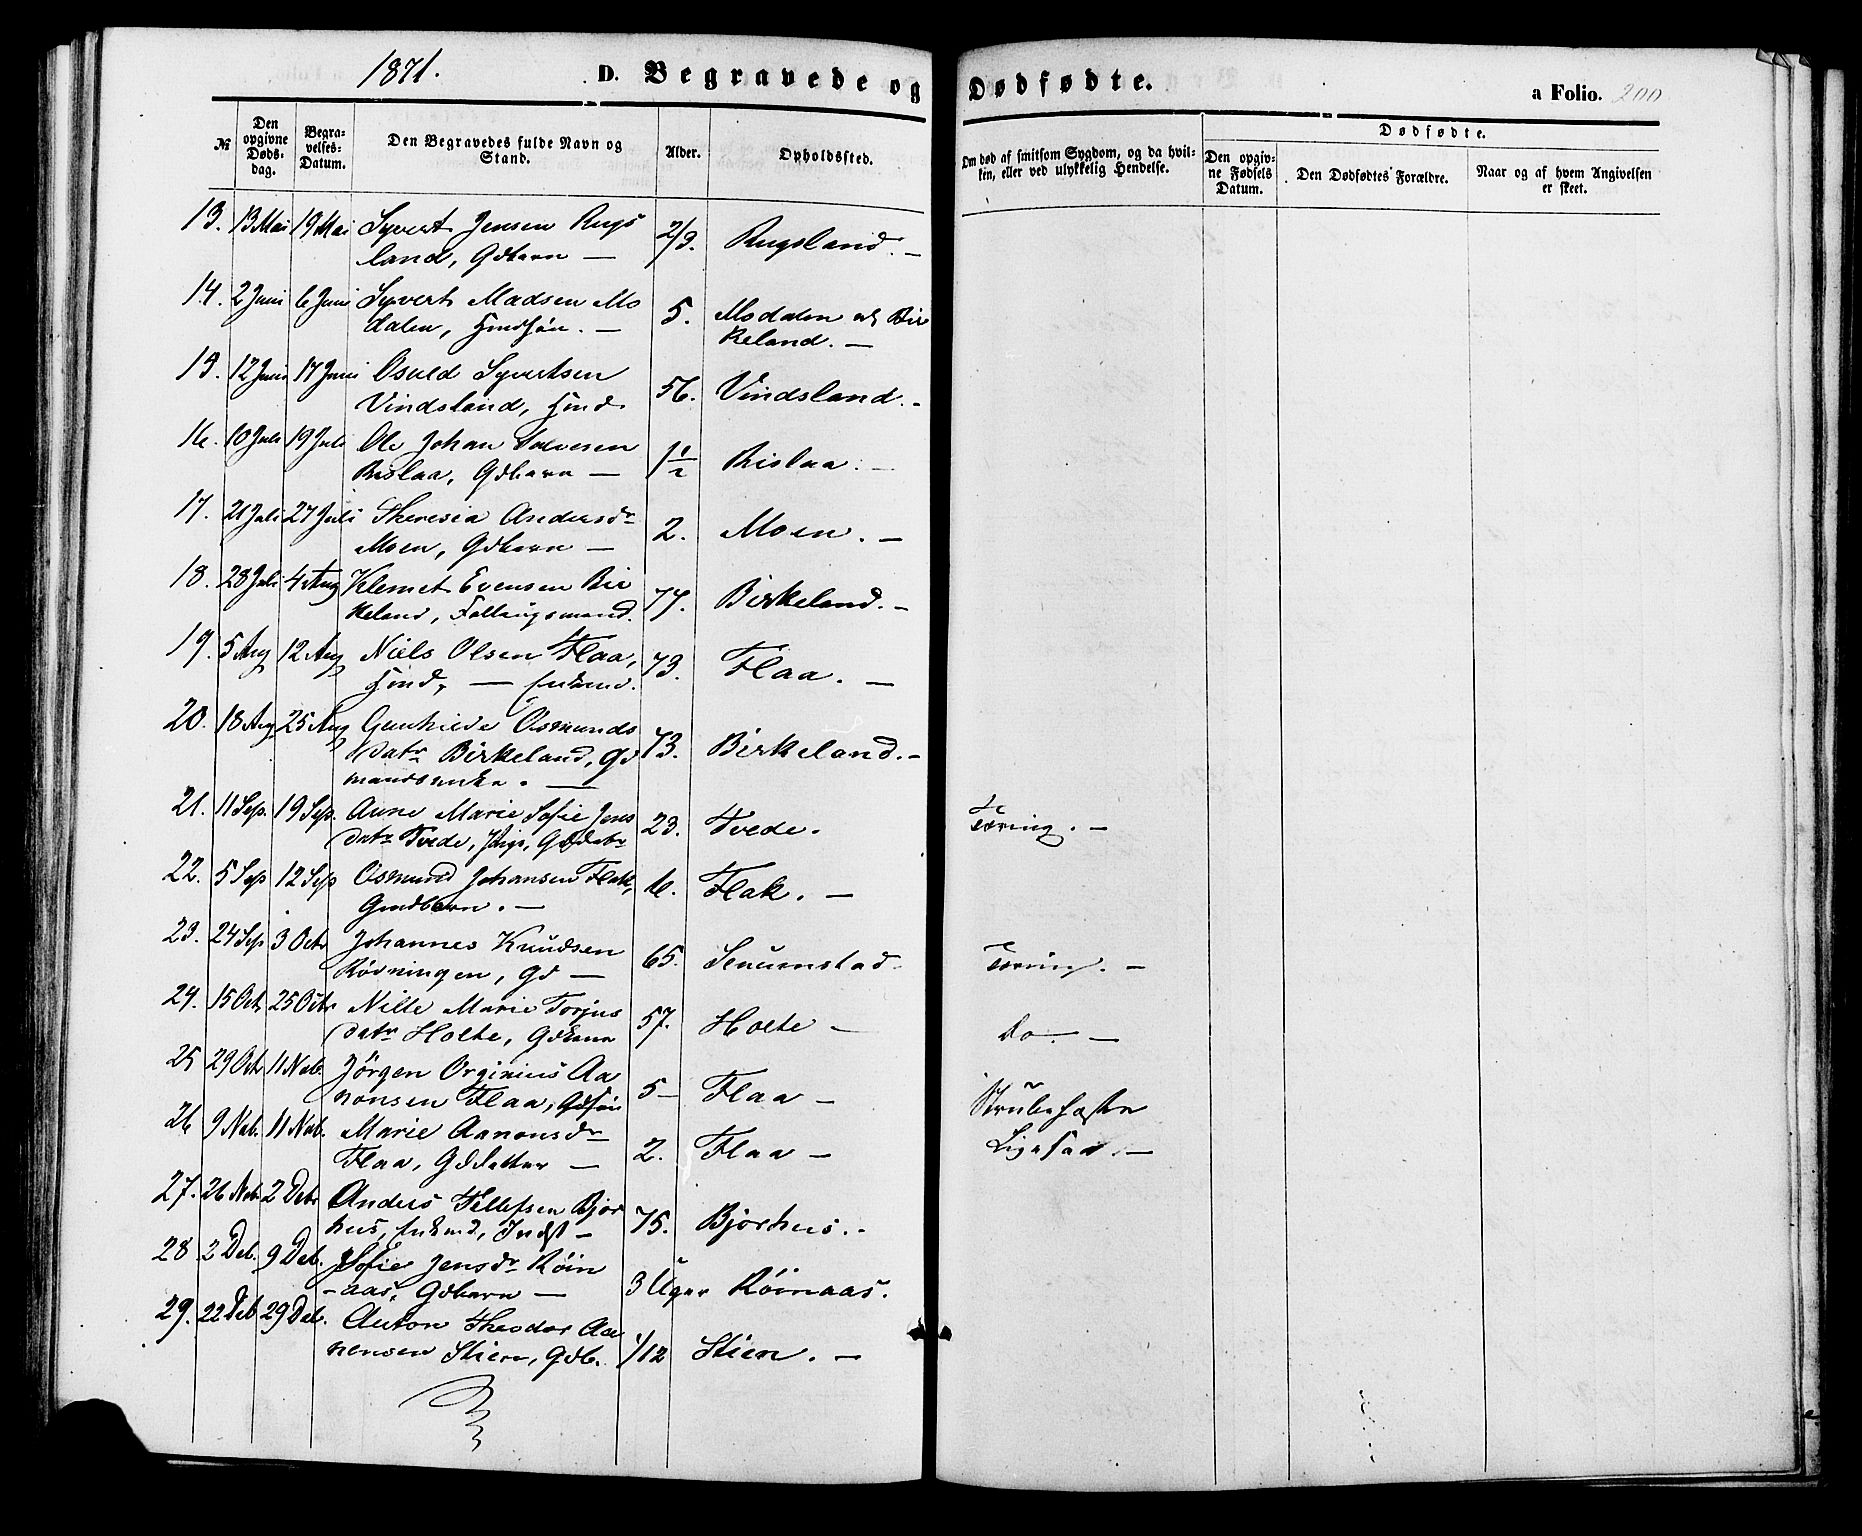 1871.
D. Begravede og Dødfødte.
a Folio. 200
№
Den opgivne Døds-dag.
Begra-velses-Datum.
Den Begravedes fulde Navn og Stand.
Alder.
Opholdssted.
Om død af smitsom Sygdom, og da hvil-ken, eller ved ulykkelig Hendelse.
Dødfødte.
Den opgiv-ne Fødsels Datum.
Den Dødfødtes Forældre.
Naar og af hvem Angivelsen er skeet.
13. 13 Mai 19 Mai Syvert Jensen Rugs
land, Gdbarn — 2/3. Rugsland. —
14. 2 Juni 6 Juni Syvert Madsen Mo
dalen, — 5. Modalen u/ Bir
keland. —
15. 12 Juni 17 Juni Osuld Syvertsen
Vindsland, 56. Vindsland. -
16. 10 Juli 19 Juli Ole Johan Salvesen
Rislaa, Gdbarn — 1 1/2 Rislaa. —
17. 21 Juli 27 Juli Theresia Andersdr
Moen, Gdbarn — 2. Moen. —
18. 28 Juli 4 Aug Klemet Evensen Bir
keland, Føderaadsmand. 77. Birkeland. -
19. 5 Aug 12 Aug Niels Olsen Flaa,
— Enkemd. 73. Flaa. —
20. 18 Aug 25 Aug Gunhilde Osmunds
Datr Birkeland, Gd
mandsenke. — 73. Birkeland. -
21. 11 Sep. 19 Sep. Anne Marie Sofie Jens
datr Tvede, Pige, GdDatr 23. Tvede. Tæring. —
22. 5 Sep 12 Sep Osmund Johansen Flak,
Gmdbarn. — 6. Flak. —
23. 24 Sep 3 Octr Johannes Knudsen
Røvningen, Gd — 65. Senumstad. Tæring. —
24. 15 Oct 25 Octr Nille Marie Torjus
datr Holte, Gdkone 57. Holte — Do. —
25 29 Oct 11 Nov. Jörgen Orginius Aa
nonsen Flaa, Gdsøn 5 — Flaa — Strubehoste
26 9 Nov. 11 Nov. Marie Aanonsdr
Flaa, GdDatter — 2. Flaa — Ligesaa. —
27. 26 Nov. 2 Debr Anders Tellefsen Bjor
hus, Enkemd, Indst — 75. Bjorhus. -
28. 2 Deb. 9 Deb. Sofie Jensdr Röin
-aas, Gdbarn — 3 Uger Röinaas.
29. 22 Deb 29 Deb. Anton Theodor Aa
nensen Stien, Gdb. 1/12 Stien. —